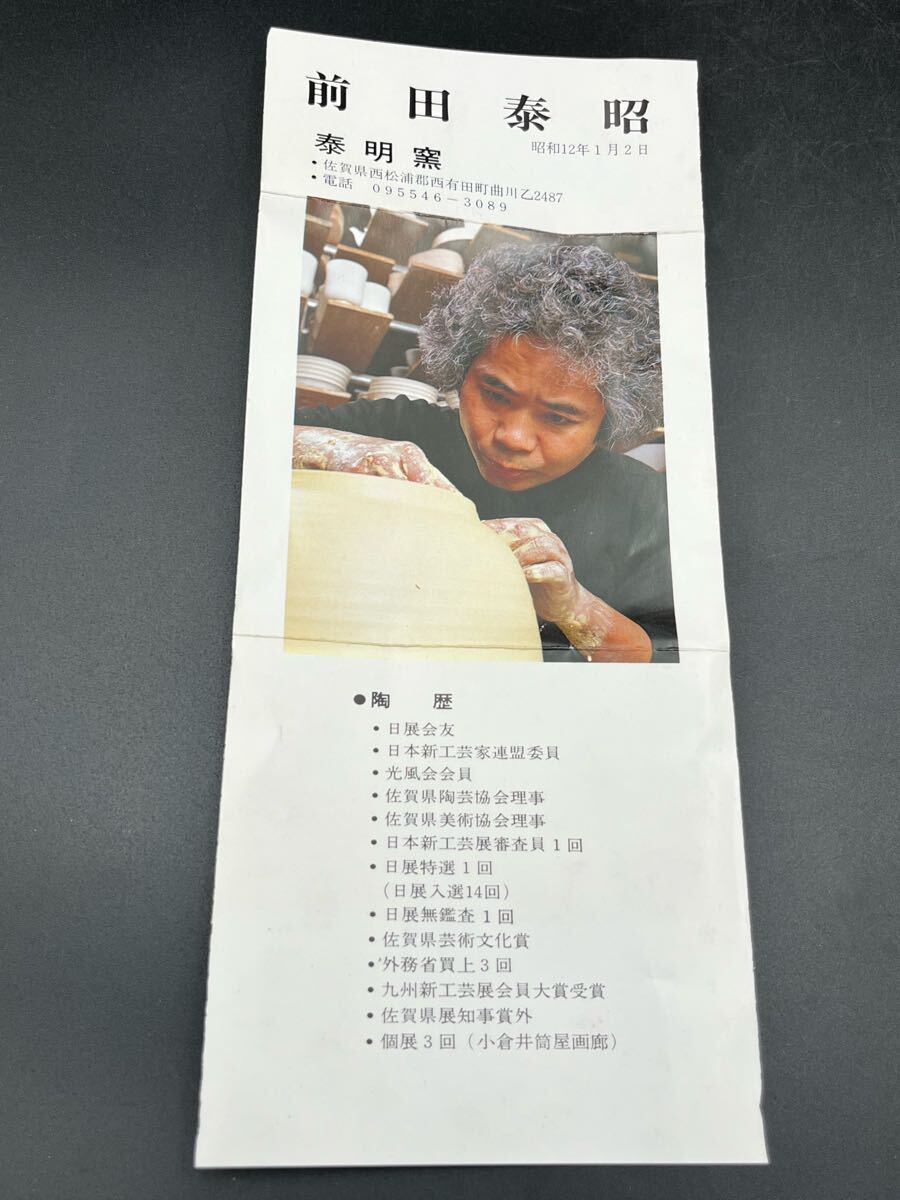 前田泰昭
昭和12年1月2日
泰明窯
・佐賀県西松浦郡西有田町曲川乙2487
・電話 095546-3089
●陶 歴
・日展会友
・日本新工芸家連盟委員
・光風会会員
・佐賀県陶芸協会理事
・佐賀県美術協会理事
・日本新工芸展審査員1回
・日展特選1回
(日展入選14回)
・日展無鑑査1回
・佐賀県芸術文化賞
・外務省買上3回
・九州新工芸展会員大賞受賞
・佐賀県展知事賞外
・個展3回(小倉井筒屋画廊)